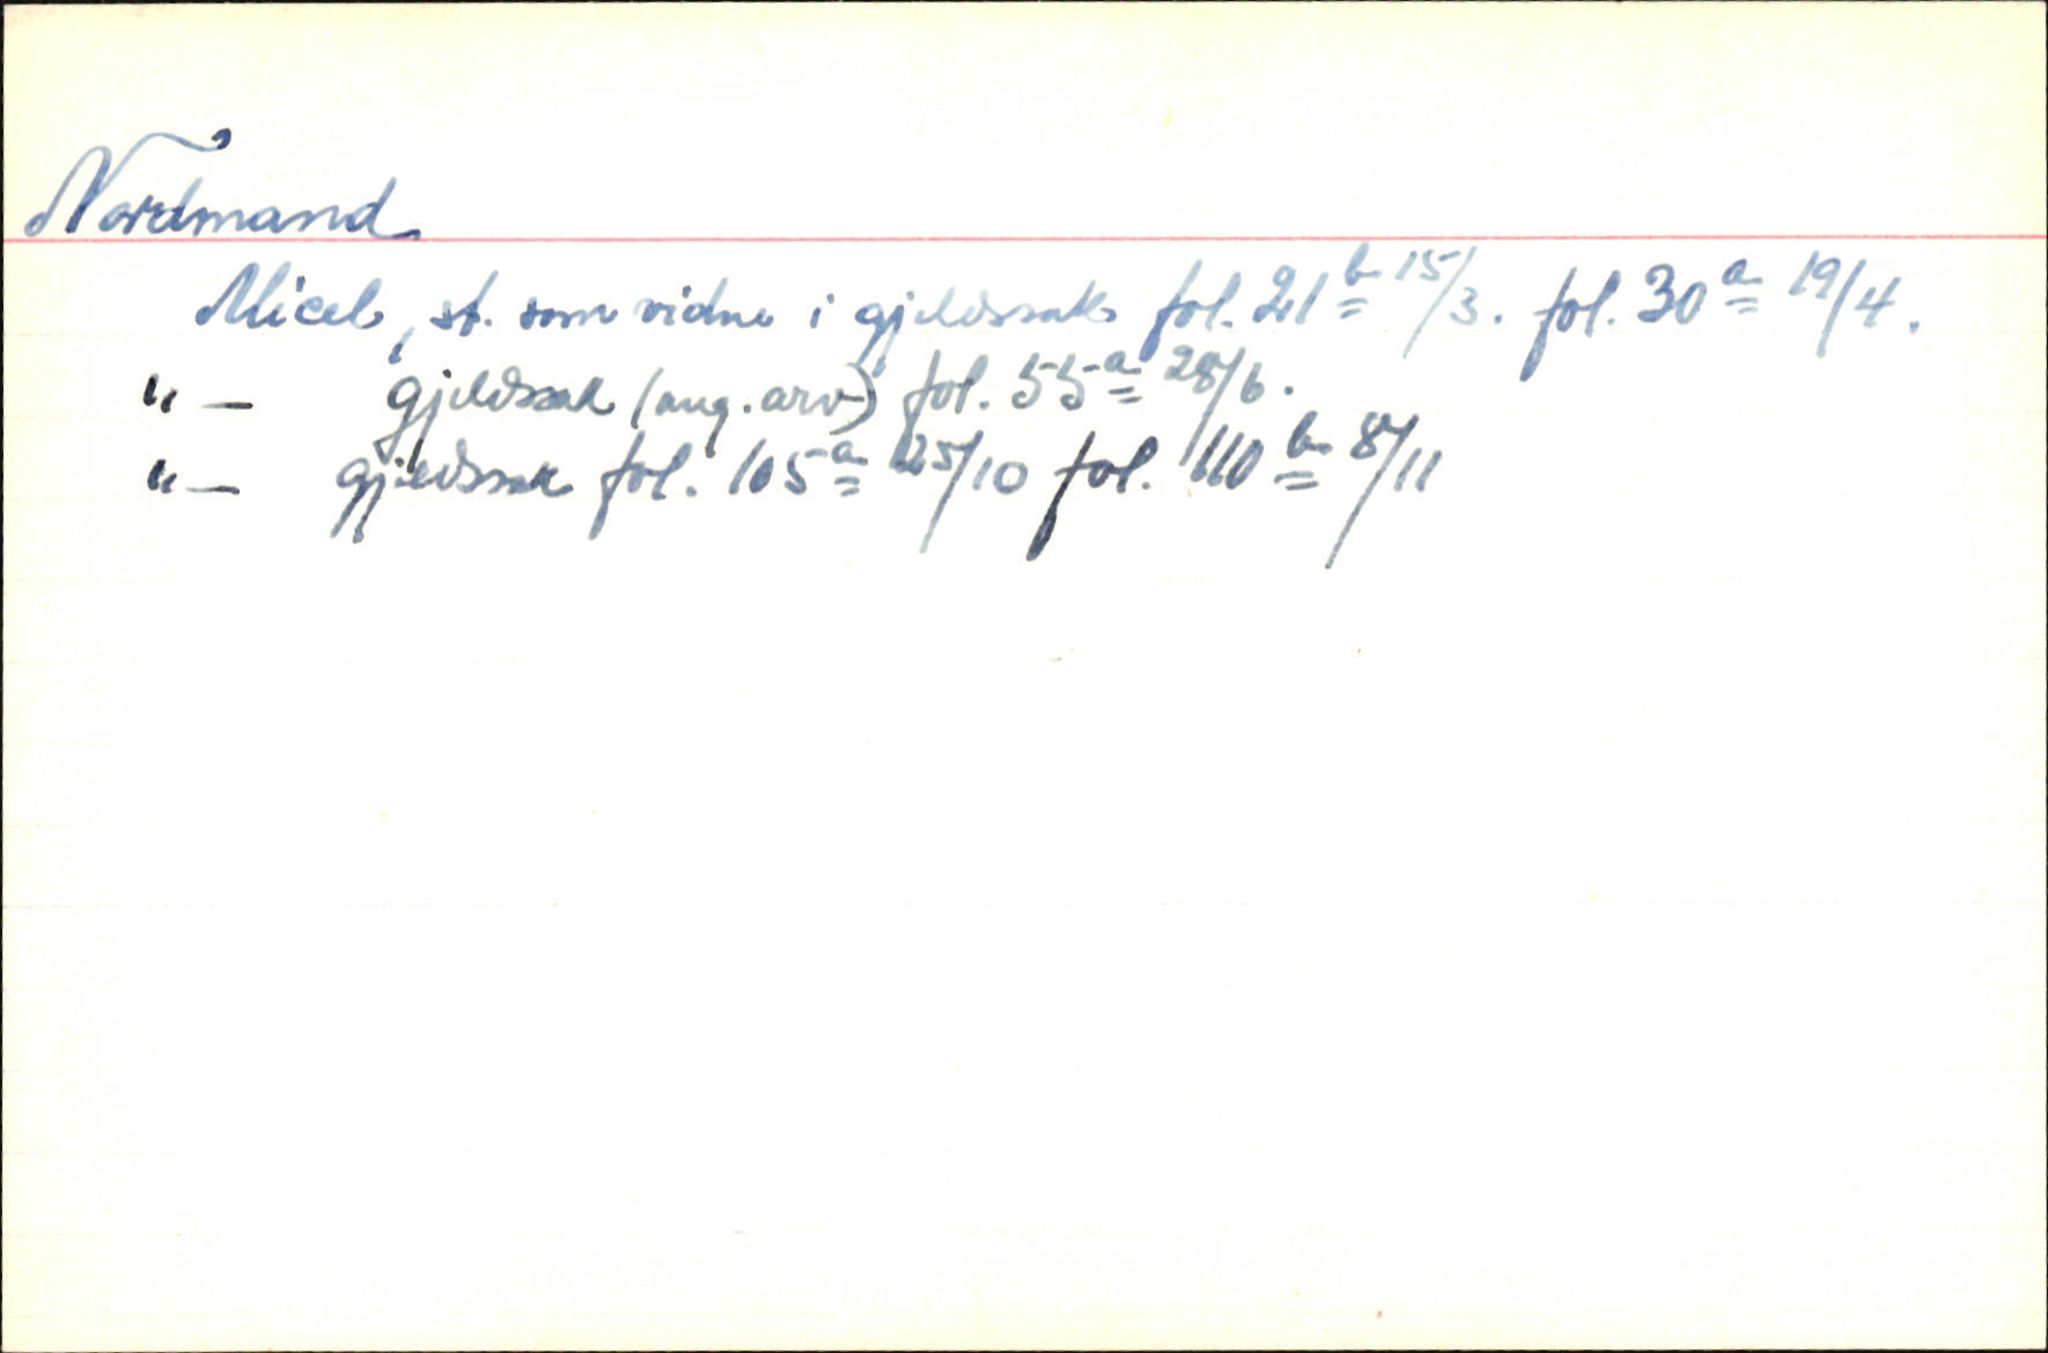 Nordmand
Micel, st. som vidne i gjeldssak fol. 21 b 15/3. fol. 30 a 19/4.
" — gjeldssak (ang. arv) fol. 55 a 28/6.
" — gjeldssak fol. 105 a 25/10 fol. 110 b 8/11